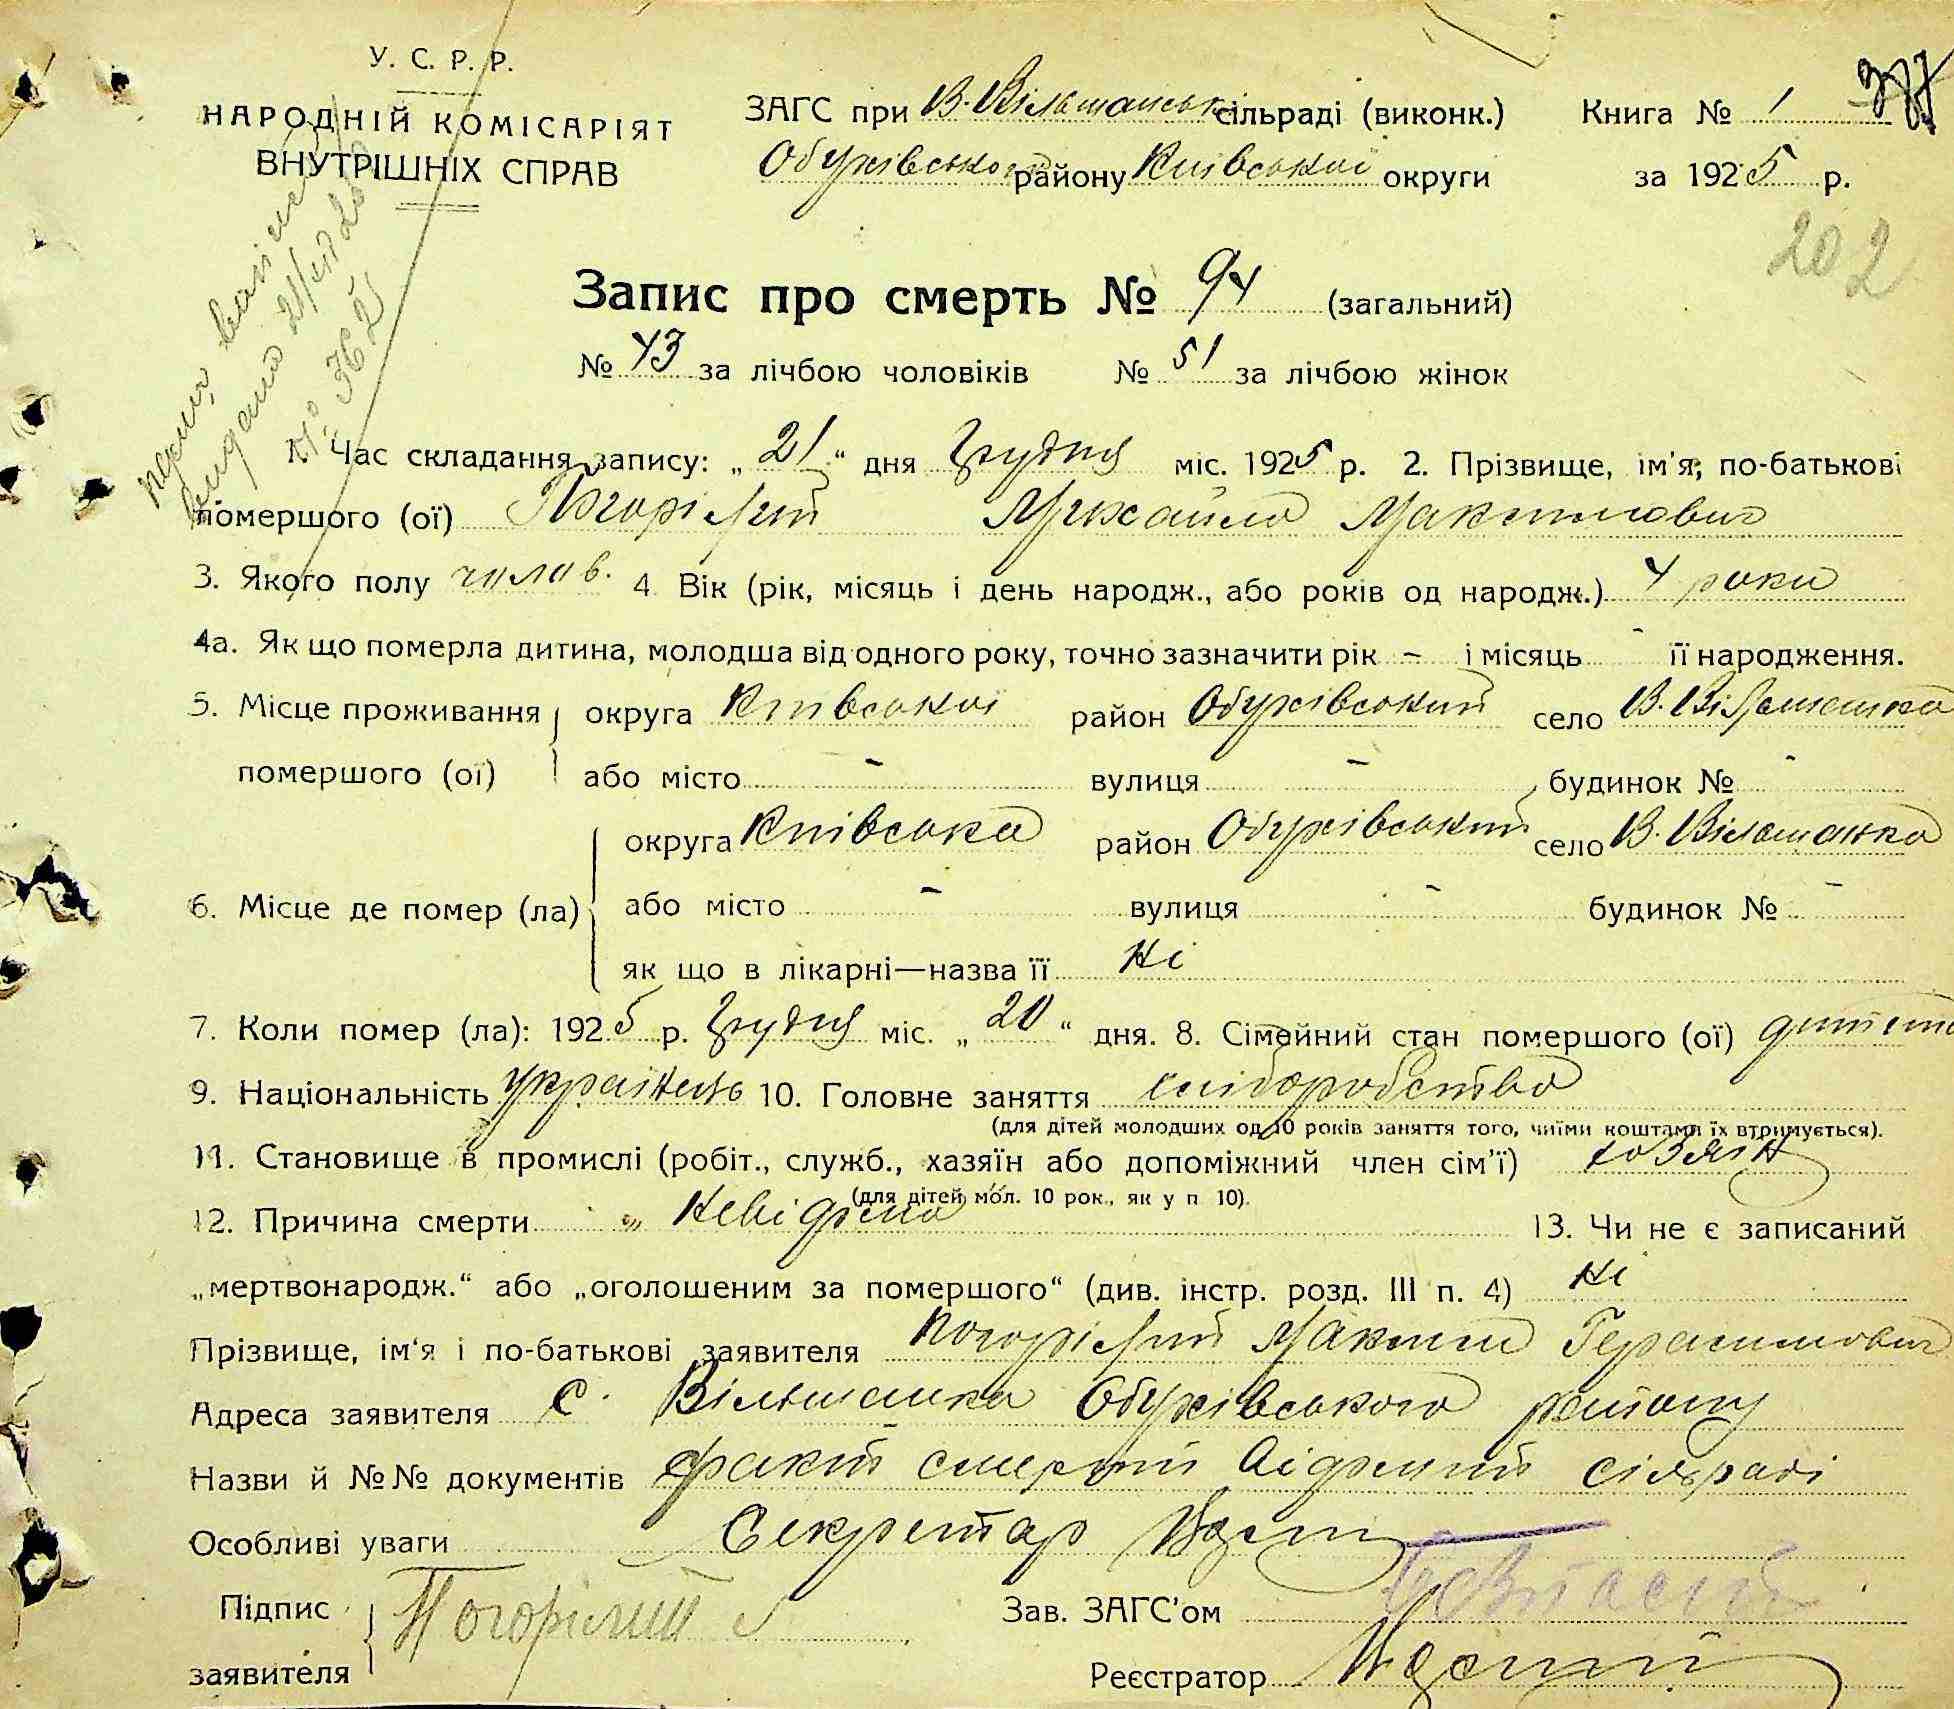 У. С. Р. Р.
НАРОДНІЙ КОМІСАРІЯТ
ВНУТРІШНІХ СПРАВ
ЗАГС при В. Вільшанській сільраді (виконк.)
Обухівського району Київської округи
Книга № 1
за 1925 р.
202
Запис про смерть № 94 (загальний)
№ 43 за лічбою чоловіків № 51 за лічбою жінок
1. Час складання запису: „21“ дня Грудня міс. 1925 р. 2. Прізвище, ім'я, по-батькові
помершого (ої) Погорілий Михайло Максимович
3. Якого полу чолов. 4. Вік (рік, місяць і день народж., або років од народж.) 4 роки
4а. Як що померла дитина, молодша від одного року, точно зазначити рік – і місяць – її народження.
5. Місце проживання округа Київської район Обухівський село В. Вільшанка
помершого (ої) або місто – вулиця – будинок № –
округа Київська район Обухівський село В. Вільшанка
6. Місце де помер (ла) або місто – вулиця – будинок № –
як що в лікарні—назва її Ні
7. Коли помер (ла): 1925 р. Грудня міс. „20“ дня. 8. Сімейний стан помершого (ої) дитина
9. Національність українець 10. Головне заняття хліборобство
(для дітей молодших од 10 років заняття того, чиїми коштами їх втримується).
11. Становище в промислі (робіт., служб., хазяїн або допоміжний член сім'ї) хозяїн
(для дітей мол. 10 рок., як у п 10).
12. Причина смерти невідома 13. Чи не є записаний
„мертвонародж.“ або „оголошеним за помершого“ (див. інстр. розд. III п. 4) Ні
Прізвище, ім'я і по-батькові заявителя Погорілий Максим Герасимович
Адреса заявителя с. Вільшанка Обухівського району
Назви й №№ документів факт смерти відомий сільраді
Особливі уваги Секретар
Підпис Погорілий
заявителя
Зав. ЗАГС'ом
Реєстратор